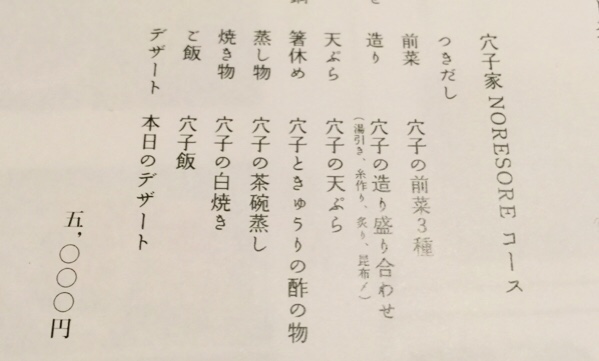 穴子家 NORESORE コース
つきだし
前菜 穴子の前菜3種
造り 穴子の造り盛り合わせ
(湯引き、糸作り、炙り、昆布〆)
天ぷら 穴子の天ぷら
箸休め 穴子ときゅうりの酢の物
蒸し物 穴子の茶碗蒸し
焼き物 穴子の白焼き
ご飯 穴子飯
デザート 本日のデザート
五,〇〇〇円